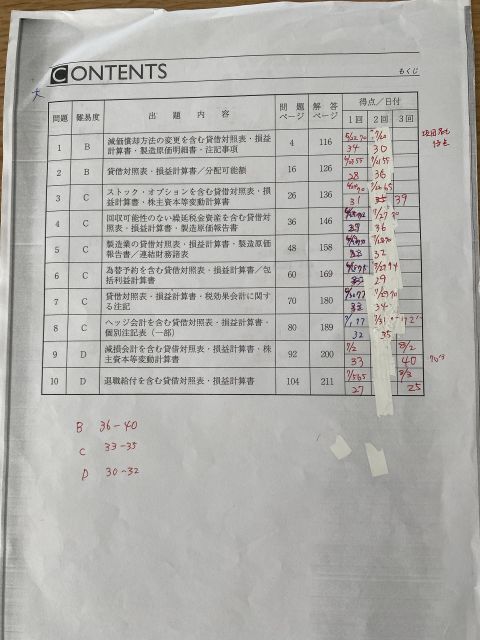 CONTENTS
もくじ
問題 難易度 出題内容 問題ページ 解答ページ 得点/日付
1回 2回 3回
1 B 減価償却方法の変更を含む貸借対照表・損益計算書・製造原価明細書・注記事項 4 116 34 30
2 B 貸借対照表・損益計算書/分配可能額 16 126 28 36
3 C ストック・オプションを含む貸借対照表・損益計算書・株主資本等変動計算書 26 136 31 35 39
4 C 回収可能性のない繰延税金資産を含む貸借対照表・損益計算書・製造原価報告書 36 146 36
5 C 製造業の貸借対照表・損益計算書・製造原価報告書/連結財務諸表 48 158 32
6 C 為替予約を含む貸借対照表・損益計算書/包括利益計算書 60 169 29
7 C 貸借対照表・損益計算書・税効果会計に関する注記 70 180 34
8 C ヘッジ会計を含む貸借対照表・損益計算書・個別注記表(一部) 80 189 32 35
9 D 減損会計を含む貸借対照表・損益計算書・株主資本等変動計算書 92 200 7/2 33 8/2 40
10 D 退職給付を含む貸借対照表・損益計算書 104 211 27 8/3 25
B 36-40
C 33-35
D 30-32